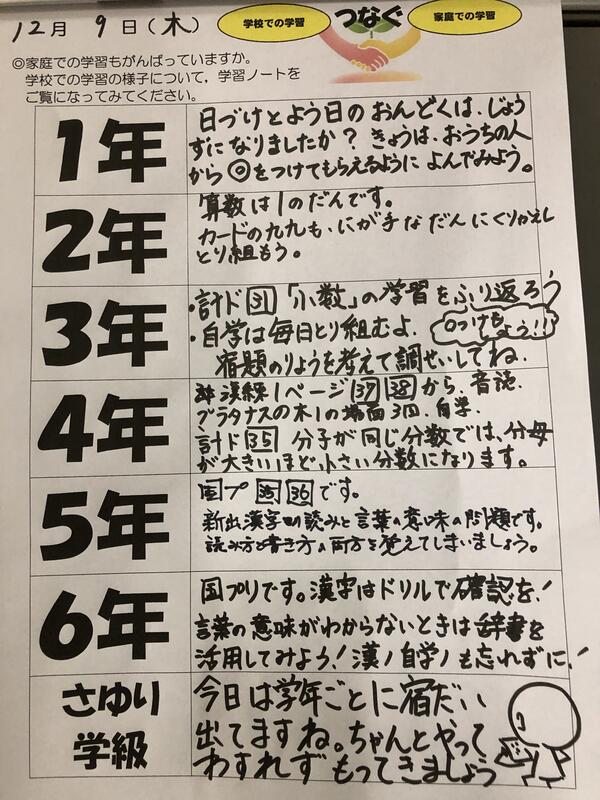 12月 9日(木)
学校での学習
つなぐ
家庭での学習
◎家庭での学習もがんばっていますか。
学校での学習の様子について,学習ノートを
ご覧になってみてください。
1年
日づけとよう日のおんどくは、じょう
ずになりましたか?きょうは、おうちの人
から◎をつけてもらえるようによんでみよう。
2年
算数は1のだんです。
カードの九九も、にが手なだんにくりかえし
とり組もう。
3年
・計ド31「小数」の学習をふり返ろう
・自学は毎日とり組むよ.
○つけも
しよう!!!
宿題のりょうを考えて調せいしてね.
4年
漢練1ページ 37 38 から、音読
プラタナスの木1の場面3回、自学.
計ド35 分子が同じ分数では、分母
が大きいほど、小さい分数になります。
5年
国プ 35 36 です。
新出漢字の読みと言葉の意味の問題です。
読み方と書き方の両方を覚えてしまいましょう。
6年
国プリです。漢字はドリルで確認を!
言葉の意味がわからないときは辞書を
活用してみよう!漢ノ自学ノも忘れずに!
さゆり
学級
今日は学年ごとに宿だい
出てますね。ちゃんとやって
わすれず もってきましょう